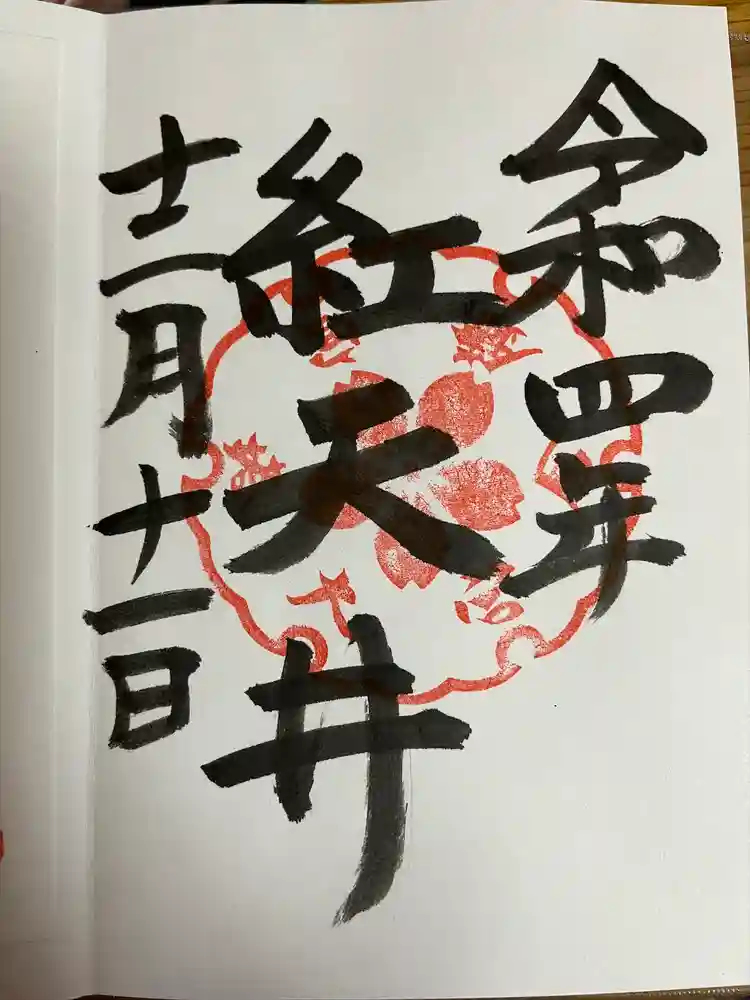 令和四年
紅天井
十二月十一日